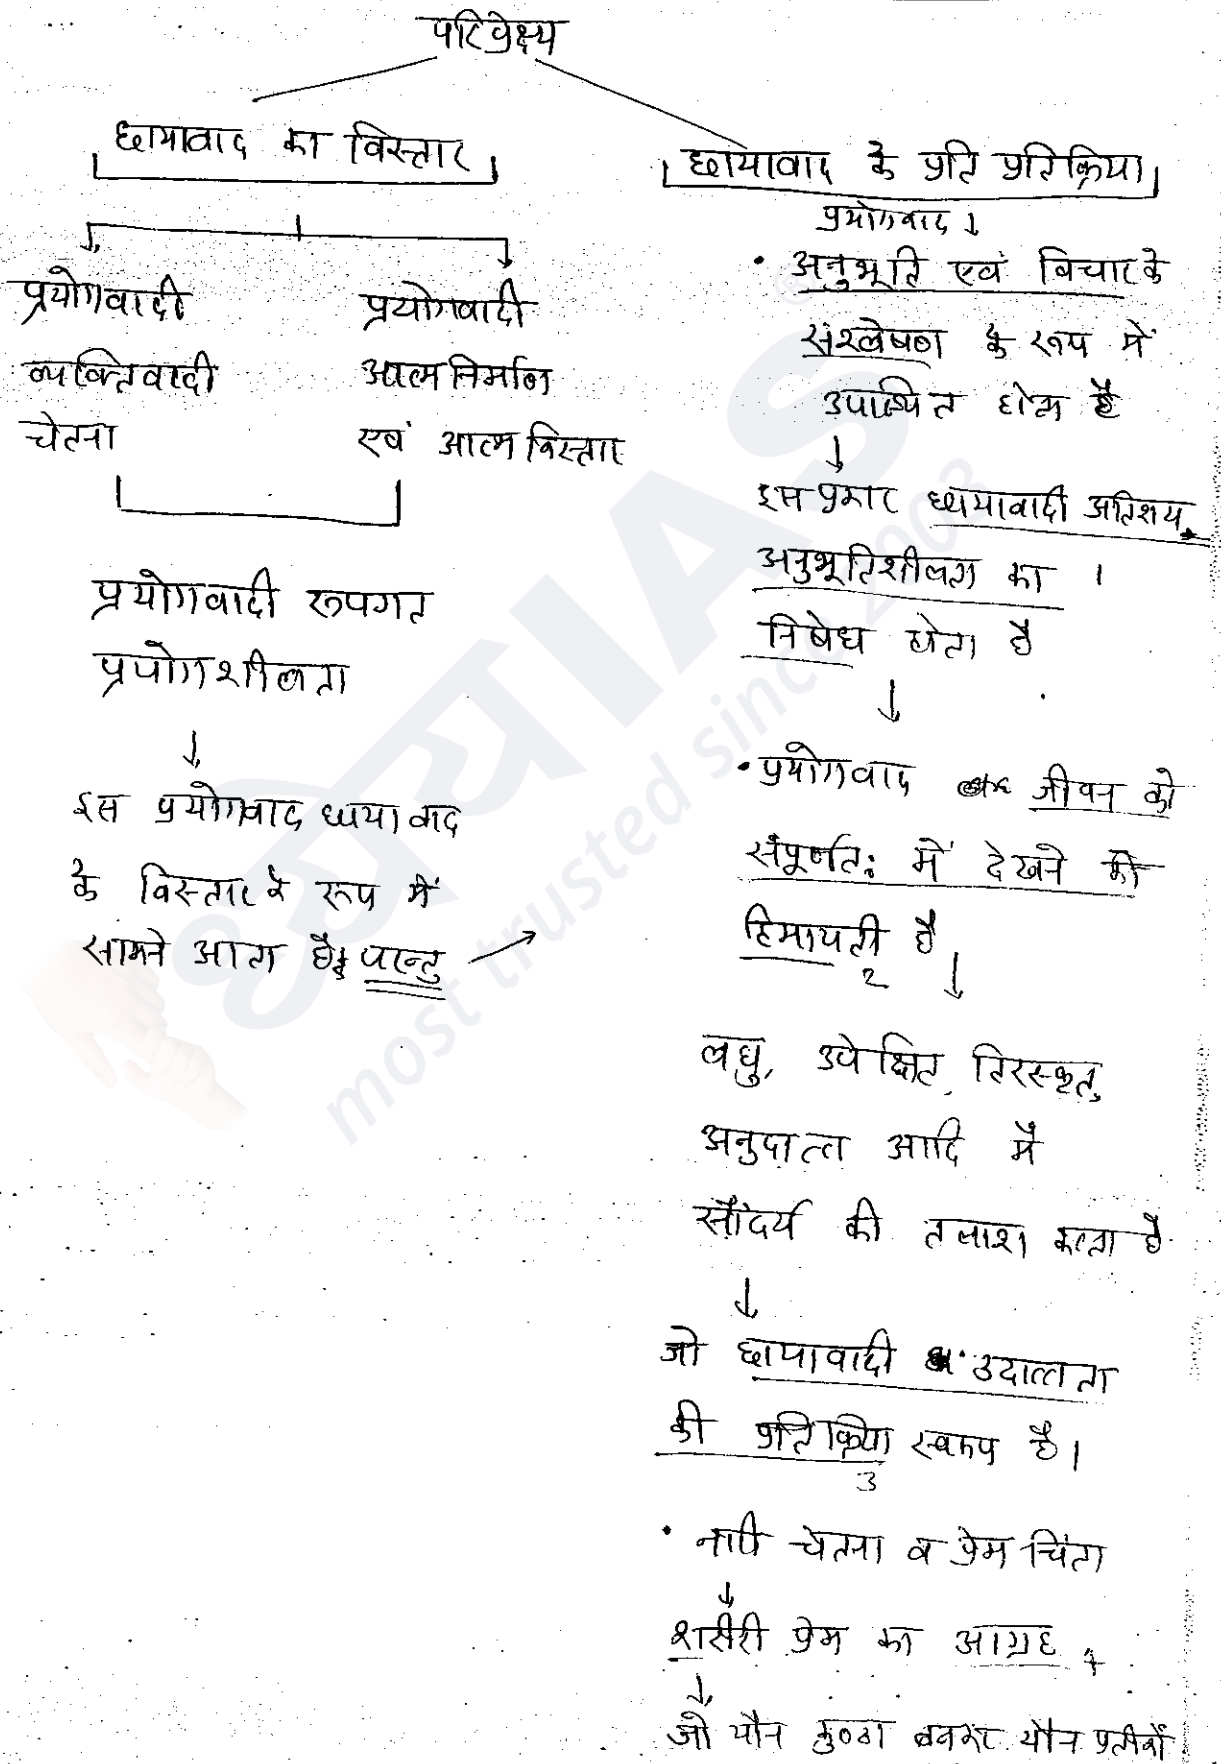 परिप्रेक्ष्य
छायावाद का विस्तार
प्रयोगवादी
व्यक्तिवादी
चेतना
प्रयोगवादी
आत्म निर्माण
एवं आत्म विस्तार
प्रयोगवादी रूपगत
प्रयोगशीलता
इस प्रयोगवाद छायावाद
के विस्तार के रूप में
सामने आता है परन्तु
छायावाद के प्रति प्रतिक्रिया
प्रयोगवाद
• अनुभूति एवं विचार के
संश्लेषण के रूप में
उपस्थित होता है
इस प्रकार छायावादी अतिशय
अनुभूतिशीलता का 1
निषेध होता है
• प्रयोगवाद जीवन को
संपूर्णतः में देखने की
हिमायती है
2
लघु, उपेक्षित, तिरस्कृत,
अनुदात्त आदि में
सौंदर्य की तलाश करता है
जो छायावादी उदात्तता
की प्रतिक्रिया स्वरूप है।
3
• नारी चेतना व प्रेम चिंता
शरीरी प्रेम का आग्रह
जो यौन कुण्ठा बनकर यौन प्रतीकों
ध्येय IAS
most trusted since 2003